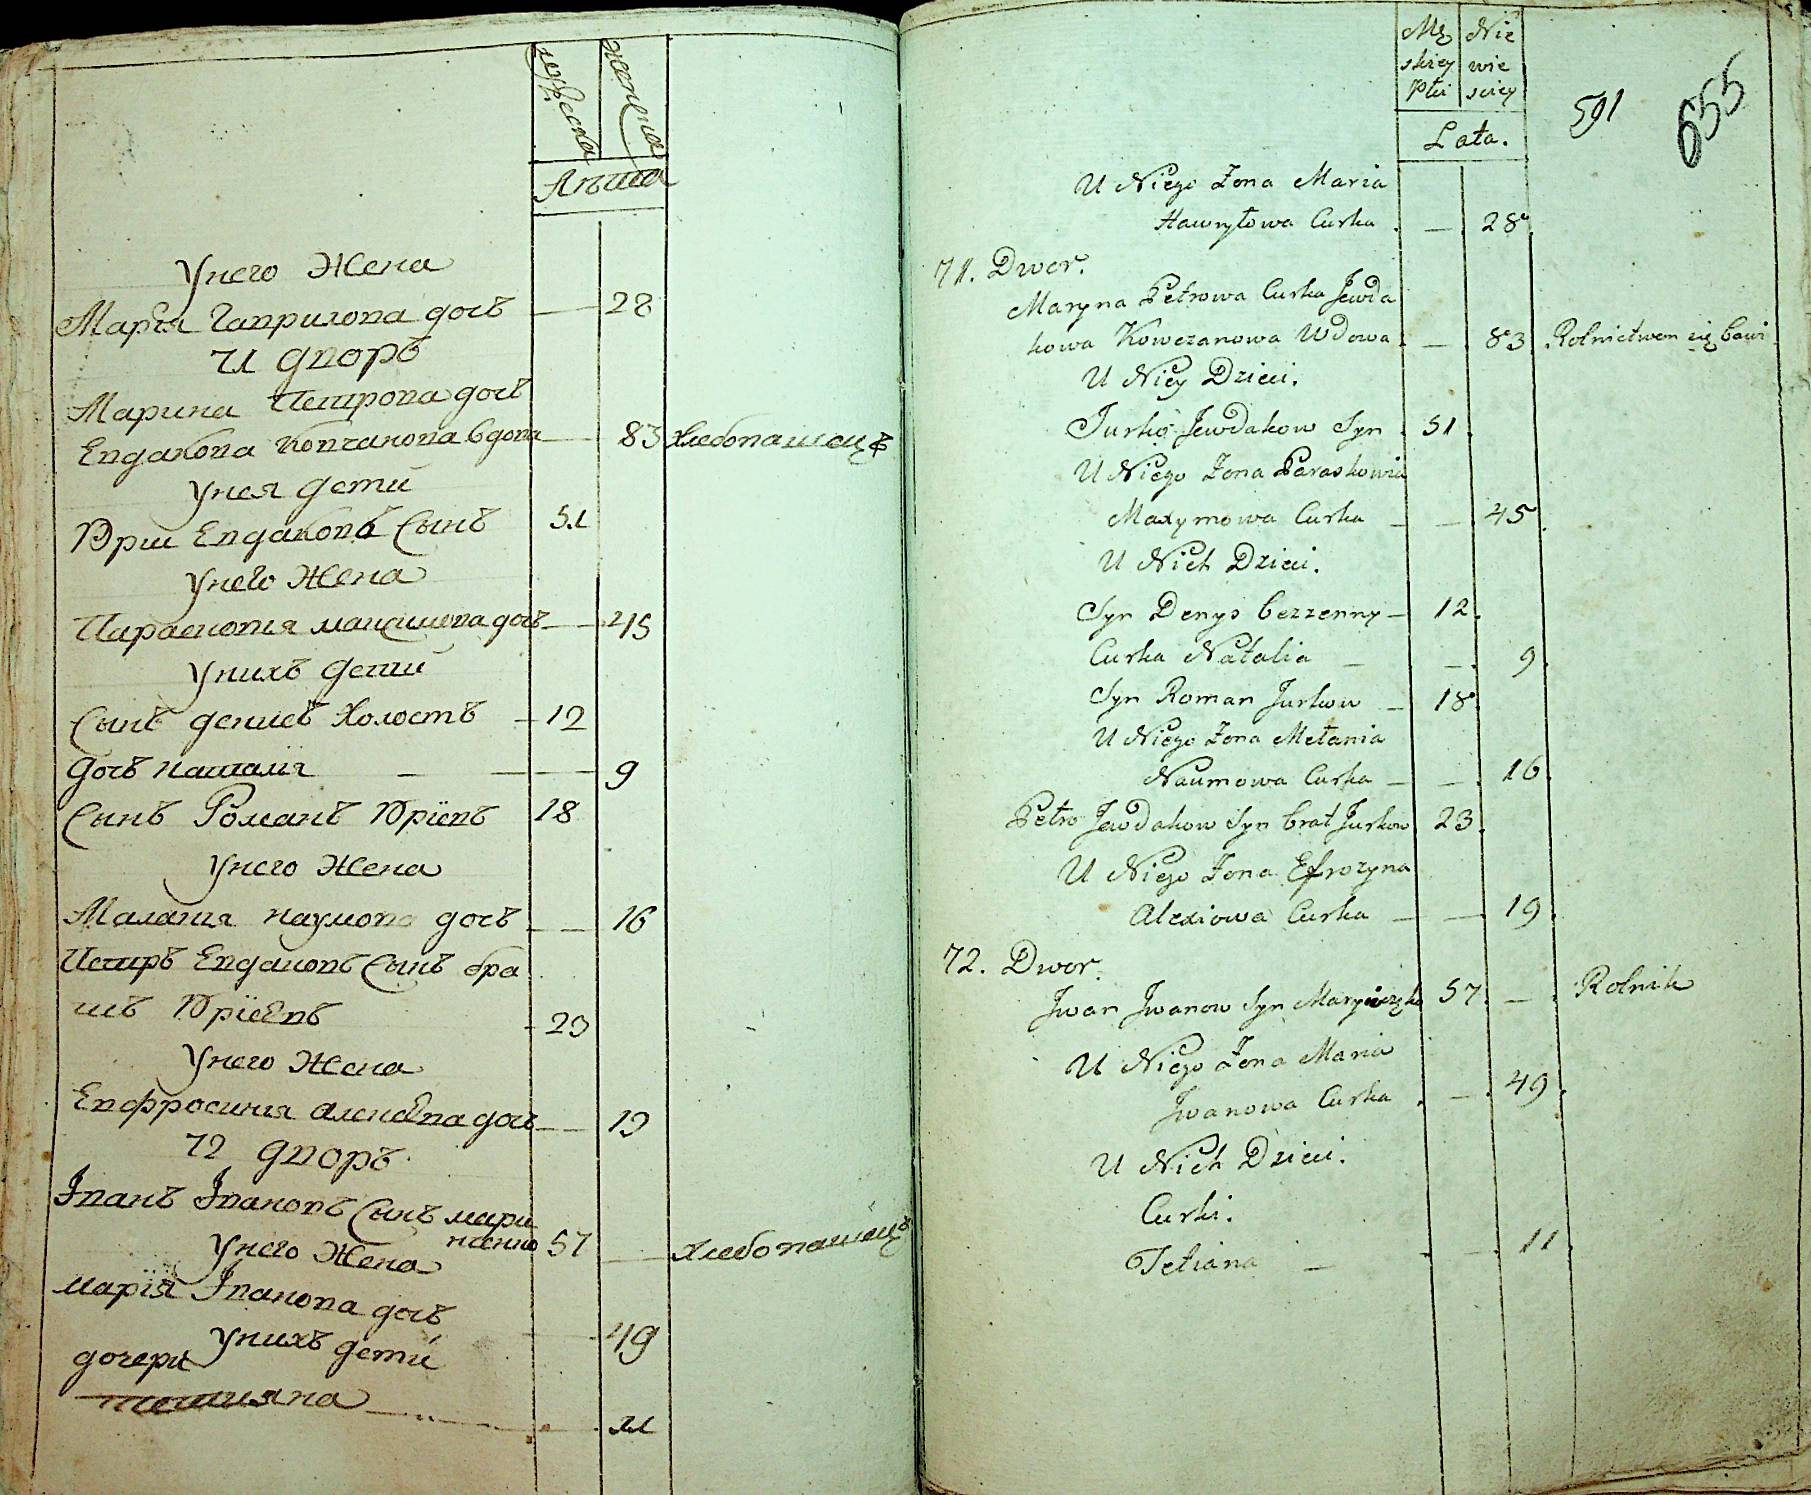 мужеска
женска
Лѣта
У него Жена
Марїя Гаврилова дочъ — 28
71 дворъ
Марина Петрова дочъ
Евдакова Ковчанова вдова — 83 хлебопашецъ
У нея дети
Юрии Евдаковъ Сынъ 51
У него Жена
Парасковия максимова дочъ — 45
У нихъ дети
Сынъ денисъ холостъ — 12
дочъ наталїя — 9
Сынъ Романъ Юрїевъ 18
У него Жена
Малания наумова дочъ — 16
Петръ Евдаковъ Сынъ бра
тъ Юрїевъ - 23
У него Жена
Евфросиния алексѣева дочъ — 19
72 дворъ
Іванъ Івановъ Сынъ мари
ченко 57 — хлебопашецъ
У него Жена
марїя Іванова дочъ 49
У нихъ дети
дочери
тетияна — 11
Mę Nie
skiey wie
Płci sciey
Lata.
591 655
U Niego Żona Maria
Hawryłowa Curka . — . 28
71. Dwor.
Maryna Petrowa Curka Jewda
kowa Kowczanowa Wdowa . — . 83 . Rolnictwem się bawi
U Niey Dzieci.
Jurko Jewdakow Syn . 51 .
U Niego Żona Paraskowia
Maxymowa Curka — — . 45 .
U Nich Dzieci.
Syn Denys bezzenny — 12 .
Curka Natalia — . — . 9 .
Syn Roman Jurkow — 18 .
U Niego Żona Mełania
Naumowa Curka — — . 16 .
Petro Jewdakow Syn brat Jurkow 23 .
U Niego Żona Efrozyna
Alexiowa Curka — — . 19 .
72. Dwor.
Jwan Jwanow Syn 57 . — . Rolnik
U Niego Żona Maria
Jwanowa Curka . — . 49 .
U Nich Dzieci.
Curki.
Tetiana — . — . 11 .